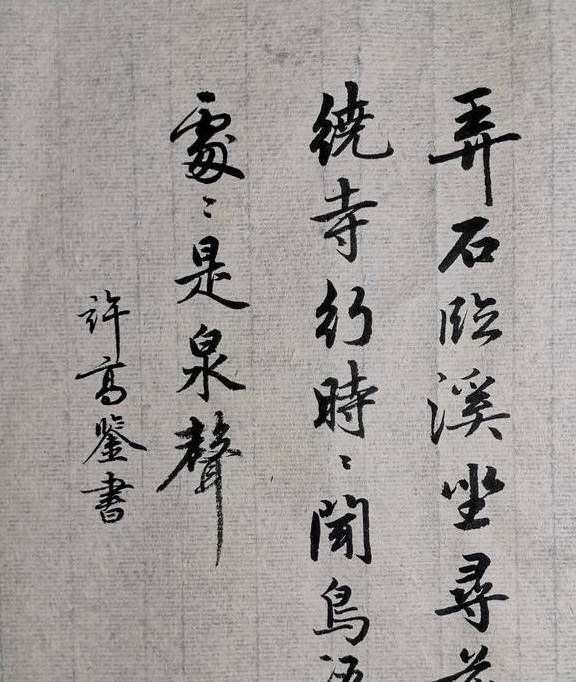 弄石臨溪坐尋花
繞寺行時〻聞鳥語
處〻是泉聲
許高鑒書